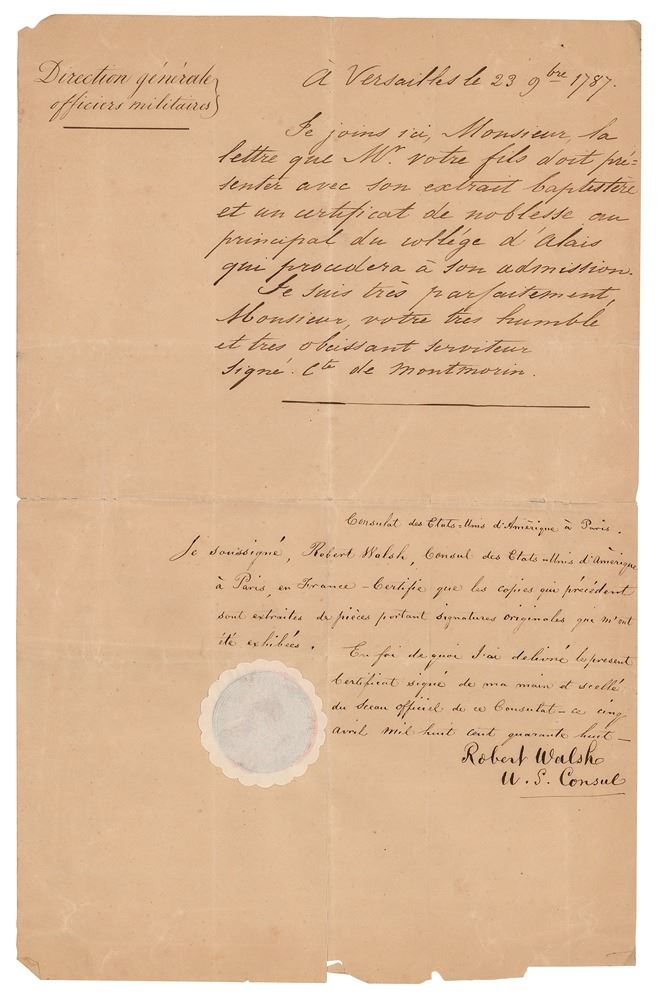 Direction générale
officiers militaires
À Versailles le 23 9bre 1787.
Je joins ici, Monsieur, la
lettre que Mr. votre fils doit pré=
senter avec son extrait baptistère
et un certificat de noblesse au
principal du collége d'Alais
qui procedera à son admission.
Je suis très parfaitement,
Monsieur, votre très humble
et tres obeissant serviteur
Signé. Cte de Montmorin.
Consulat des Etats-Unis d'Amérique à Paris.
Je soussigné, Robert Walsh, Consul des Etats-Unis d'Amérique
à Paris, en France - Certifie que les copies qui précédent
sont extraites de pièces portant signatures originales qui m'ont
été exhibées.
En foi de quoi J'ai delivré le present
Certificat signé de ma main et scellé
du Sceau officiel de ce Consulat - ce cinq
avril mil huit cent quarante huit -
Robert Walsh
U. S. Consul